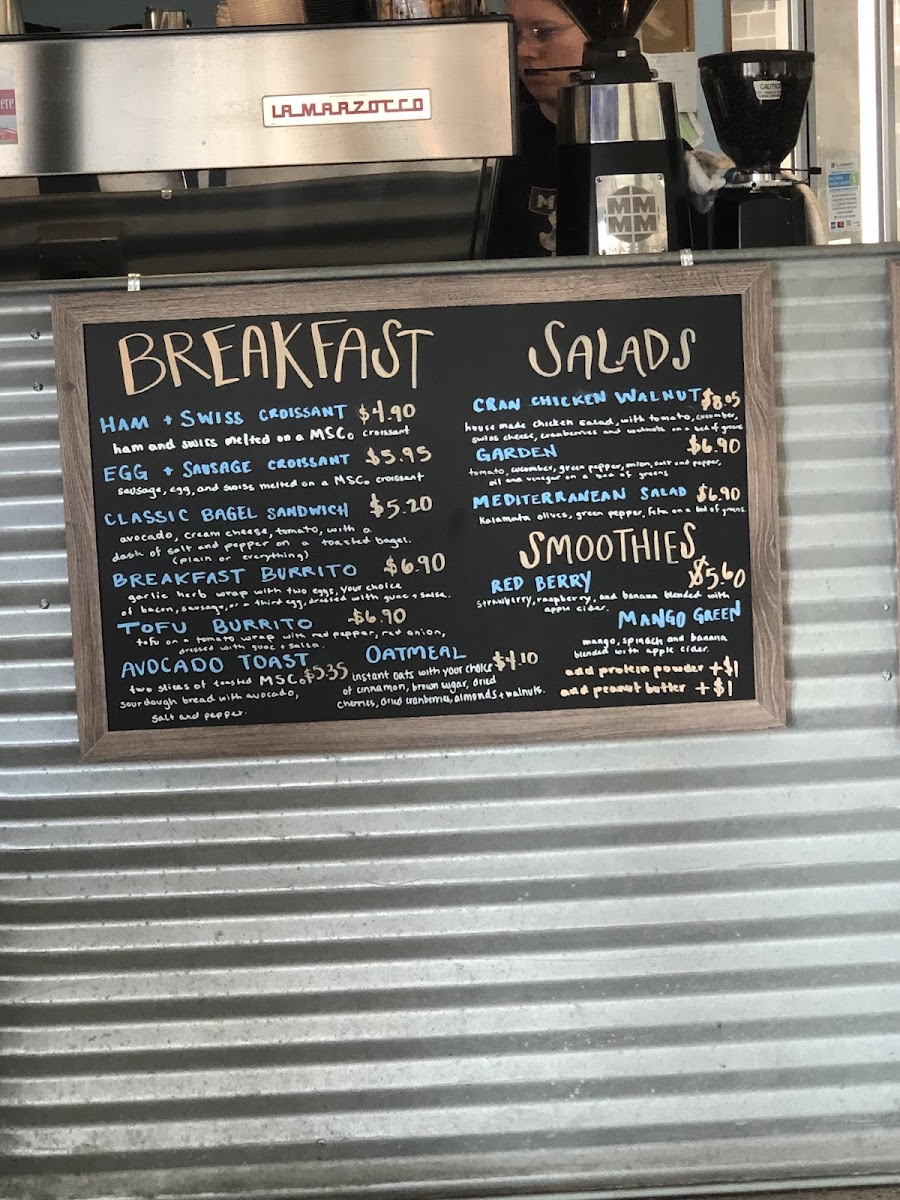 LA MARZOCCO
CAUTION
MM
MM
BREAKFAST
HAM + SWISS CROISSANT $4.90
ham and swiss melted on a MSCo croissant
EGG + SAUSAGE CROISSANT $5.95
sausage, egg, and swiss melted on a MSCo croissant
CLASSIC BAGEL SANDWICH $5.20
avocado, cream cheese, tomato, with a
dash of salt and pepper on a toasted bagel.
(plain or everything)
BREAKFAST BURRITO $6.90
garlic herb wrap with two eggs, your choice
of bacon, sausage, or a third egg, dressed with guac + salsa.
TOFU BURRITO $6.90
tofu on a tomato wrap with red pepper, red onion,
dressed with guac + salsa.
AVOCADO TOAST $5.35
two slices of toasted MSCo
sourdough bread with avocado,
salt and pepper.
OATMEAL $4.10
instant oats with your choice
of cinnamon, brown sugar, dried
cherries, dried cranberries, almonds + walnuts.
SALADS
CRAN CHICKEN WALNUT $8.05
house made chicken salad, with tomato, cucumber,
swiss cheese, cranberries and walnuts on a bed of greens
GARDEN $6.90
tomato, cucumber, green pepper, onion, salt and pepper,
oil and vinegar on a bed of greens
MEDITERRANEAN SALAD $6.90
Kalamata olives, green pepper, feta on a bed of greens
SMOOTHIES $5.60
RED BERRY
strawberry, raspberry, and banana blended with
apple cider.
MANGO GREEN
mango, spinach and banana
blended with apple cider.
add protein powder +$1
add peanut butter +$1